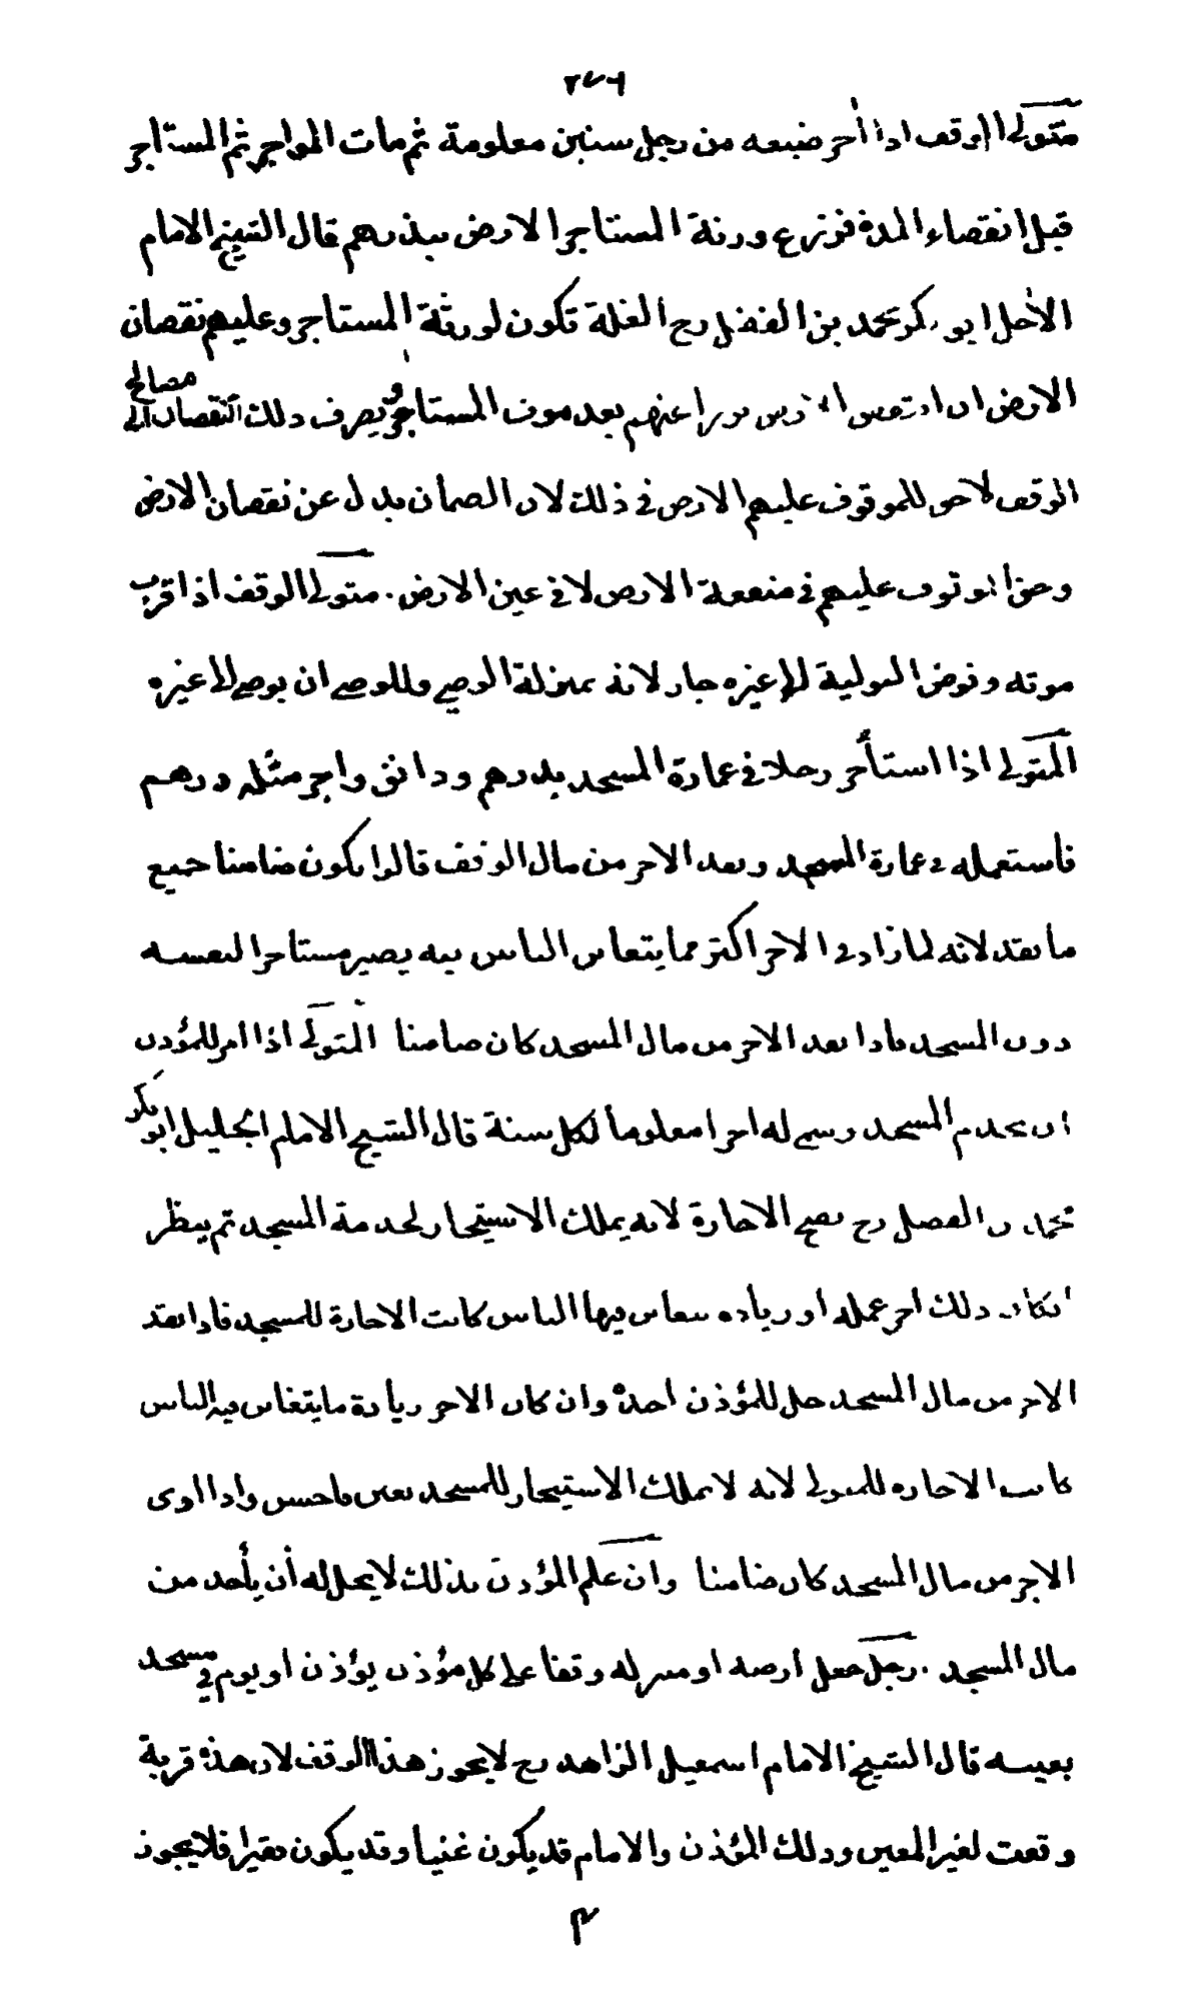 ٢٧٦
متولى الوقف اذا أجر ضيعه من رجل سنين معلومة ثم مات المواجر ثم المستاجر
قبل انقضاء المدة فزرع ورثة المستاجر الارض ببذرهم قال الشيخ الامام
الاجل ابو بكر محمد بن الفضل رح الغلة تكون لورثة المستاجر وعليهم نقصان
الارض ان انتقص الارض بزراعتهم بعد موت المستاجر ويصرف ذلك النقصان الى مصالح
الوقف لا حق للموقوف عليهم الارض فى ذلك لان الضمان بدل عن نقصان الارض
وحق الموقوف عليهم فى منفعة الارض لا فى عين الارض . متولى الوقف اذا قرب
موته وفوض التولية الى غيره جاز لانه بمنزلة الوصى وللوصى ان يوصى الى غيره
المتولى اذا استأجر رجلا فى عمارة المسجد بدرهم ودانق واجر مثله درهم
فاستعمله فى عمارة المسجد ونقد الاجر من مال الوقف قالوا يكون ضامنا جميع
ما نقد لانه لما زاد فى الاجر اكثر مما يتغابن الناس فيه يصير مستاجرا لنفسه
دون المسجد فاذا نقد الاجر من مال المسجد كان ضامنا المتولى اذا امر للمؤذن
ان يخدم المسجد وسمى له اجرا معلوما لكل سنة قال الشيخ الامام الجليل ابو بكر
محمد بن الفضل رح تصح الاجارة لانه يملك الاستيجار لخدمة المسجد ثم ينظر
انكان ذلك اجر عمله او زيادة يتغابن فيها الناس كانت الاجارة للمسجد فاذا نقد
الاجر من مال المسجد حل للمؤذن اخذه وان كان الاجر زيادة ما يتغابن فيه الناس
كانت الاجارة للمتولى لانه لا يملك الاستيجار للمسجد بغبن فاحش واذا ادى
الاجر من مال المسجد كان ضامنا وان علم المؤذن بذلك لا يحل له أن يأخذ من
مال المسجد . رجل جعل ارضه او منزله وقفا على كل مؤذن يؤذن او يوم فى مسجد
بعينه قال الشيخ الامام اسمعيل الزاهد رح لا يجوز هذا الوقف لان هذه قربة
وقعت لغير المعين وذلك المؤذن والامام قد يكون غنيا وقد يكون فقيرا فلا يجوز